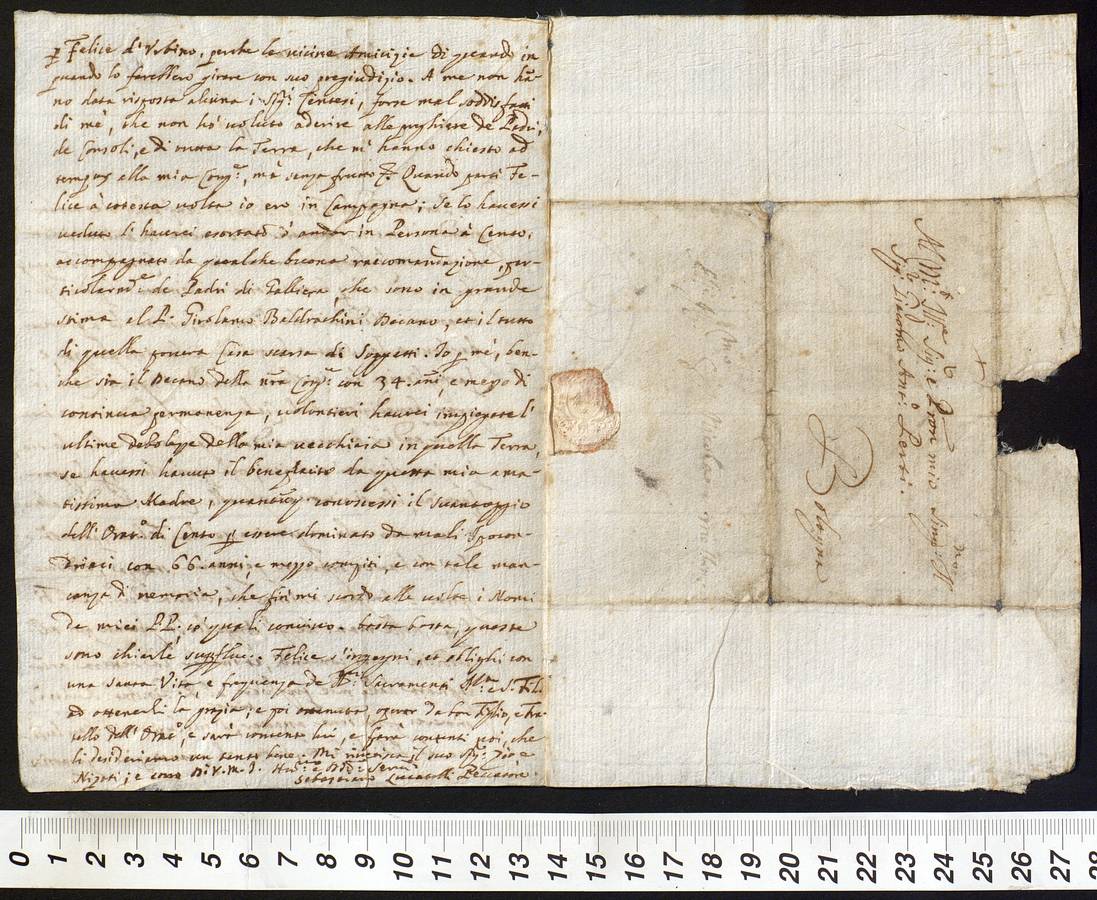 p Felice d'Urbino, perche le vicine Amicizie di quando in
quando lo faressero girare con suo pregiudizio. A me non han-
no data risposta alcuna i Sigri Centesi, forse mal soddisfatti
di mè, che non hò voluto aderire alle preghiere de Padri,
de Consoli, e di tutta la Terra, che m'hanno chiesto ad
tempus alla mia Congne, mà senza frutto. Quando partì Fe-
lice à cotesta volta io ero in Campagna; se lo havessi
veduto l'haverei esortato d'andar in Persona à Cento,
accompagnato da qualche buona raccomandazione, par-
ticolarmte de Padri di Galliera, che sono in grande
stima al P. Girolamo Baldrachini Decano, et il tutto
di quella povera Casa scarsa di Soggetti. Io p mè, ben-
che sia il Decano della nra Congne con 34 anni, e mezzo di
continua permanenza, volontieri haverei impiegate l'
ultime debolezze della mia vecchiaia in quella Terra,
se havessi havuto il beneplacito da questa mia ama-
tissima Madre, quantunq conoscessi il svantaggio
dell'Orato di Cento p essere dominato da mali Ipocon-
driaci con 66 anni, e mezzo compiti, e con tale man-
canza di memoria, che fin mi scordo alle volte i Nomi
de miei PP. co' quali convivo. basta basta, queste
sono chiarle superflue. Felice s'ingegni, et oblighi con
una santa Vita, e frequenza de Smi Sacramenti Ma e S. Fil.
ad ottenerli la grazia; e poi ottenuta, operar da bon Figlio, e Fra-
tello dell'Orato, e sarà contento lui, e farà contenti noi, che
li desideriamo un tanto bene. Mi riverisca il suo Sigr Zio e
Nipoti; e sono Di V.S.M.I. Humo e Devmo Servre
Sebastiano Lucatelli Peccatore
Al Mto Illre Sigre e Pron mio
Sigr Giacomo Anto Lersi.
Bologna